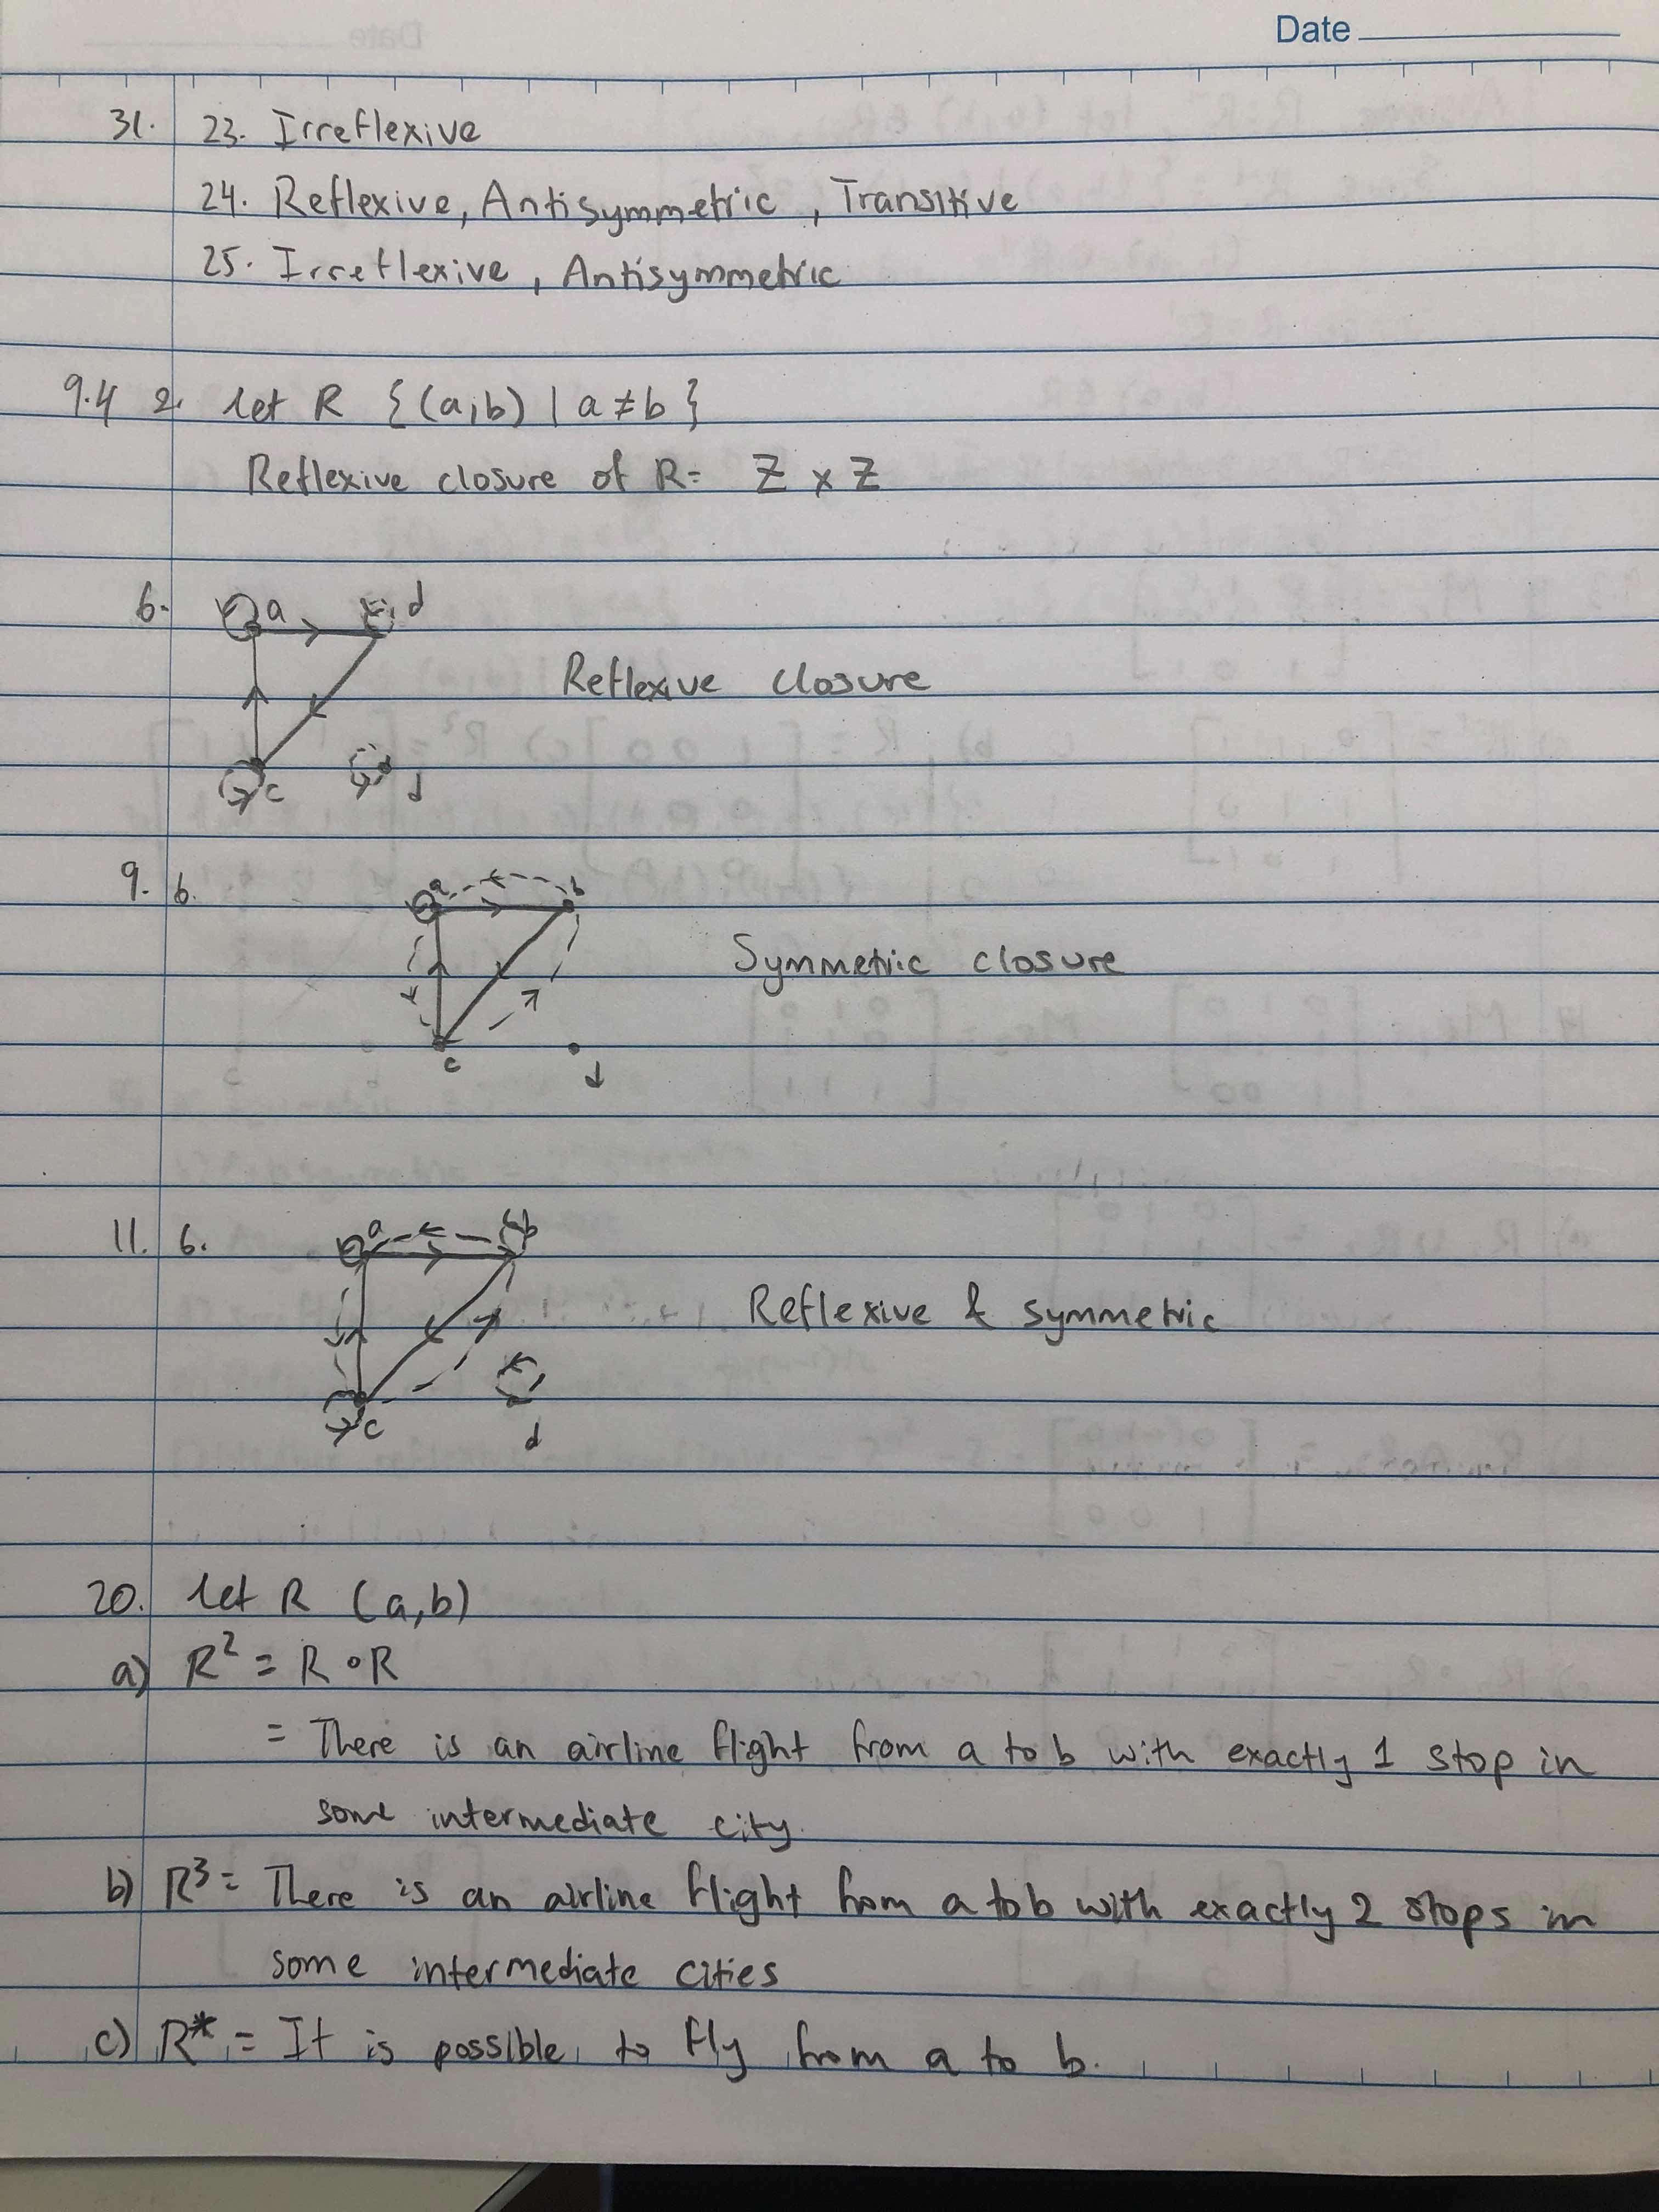 Date
31. 23. Irreflexive
24. Reflexive, Antisymmetric, Transitive
25. Irreflexive, Antisymmetric
9.4 2. let R {(a,b) | a ≠ b}
Reflexive closure of R = Z × Z
6. a d
Reflexive closure
c d
9. 6. a b
Symmetric closure
c d
11. 6. a b
Reflexive & symmetric
c d
20. let R (a,b)
a) R² = R ∘ R
= There is an airline flight from a to b with exactly 1 stop in
some intermediate city.
b) R³ = There is an airline flight from a to b with exactly 2 stops in
some intermediate cities
c) R* = It is possible to fly from a to b.